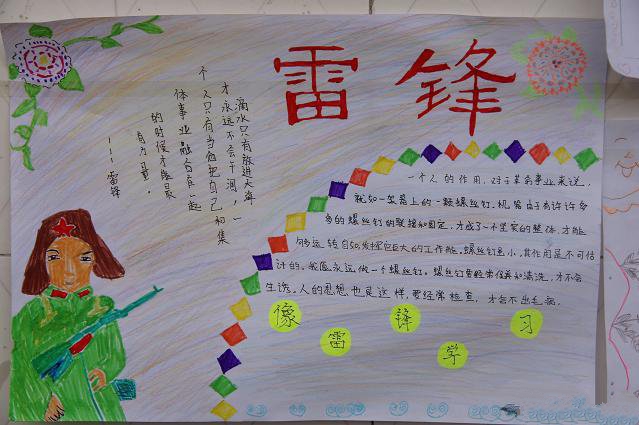 雷锋
滴水只有放进大海,
才永远不会干涸,一
个人只有当他把自己和集
体事业融合有一起
的时候才能最
有力量。
——雷锋
一个人的作用,对于革命事业来说,
就如一架器上的一颗螺丝钉,机器由于有许许多
多的螺丝钉的联接和固定,才成了一个坚实的整体,才能
够运转自如,发挥它巨大的工作能。螺丝钉虽小,其作用是不可估
计的。我愿永远做一个螺丝钉。螺丝钉要经常保养和清洗,才不会
生锈。人的思想也是这样,要经常检查,才会不出毛病。
像雷锋学习